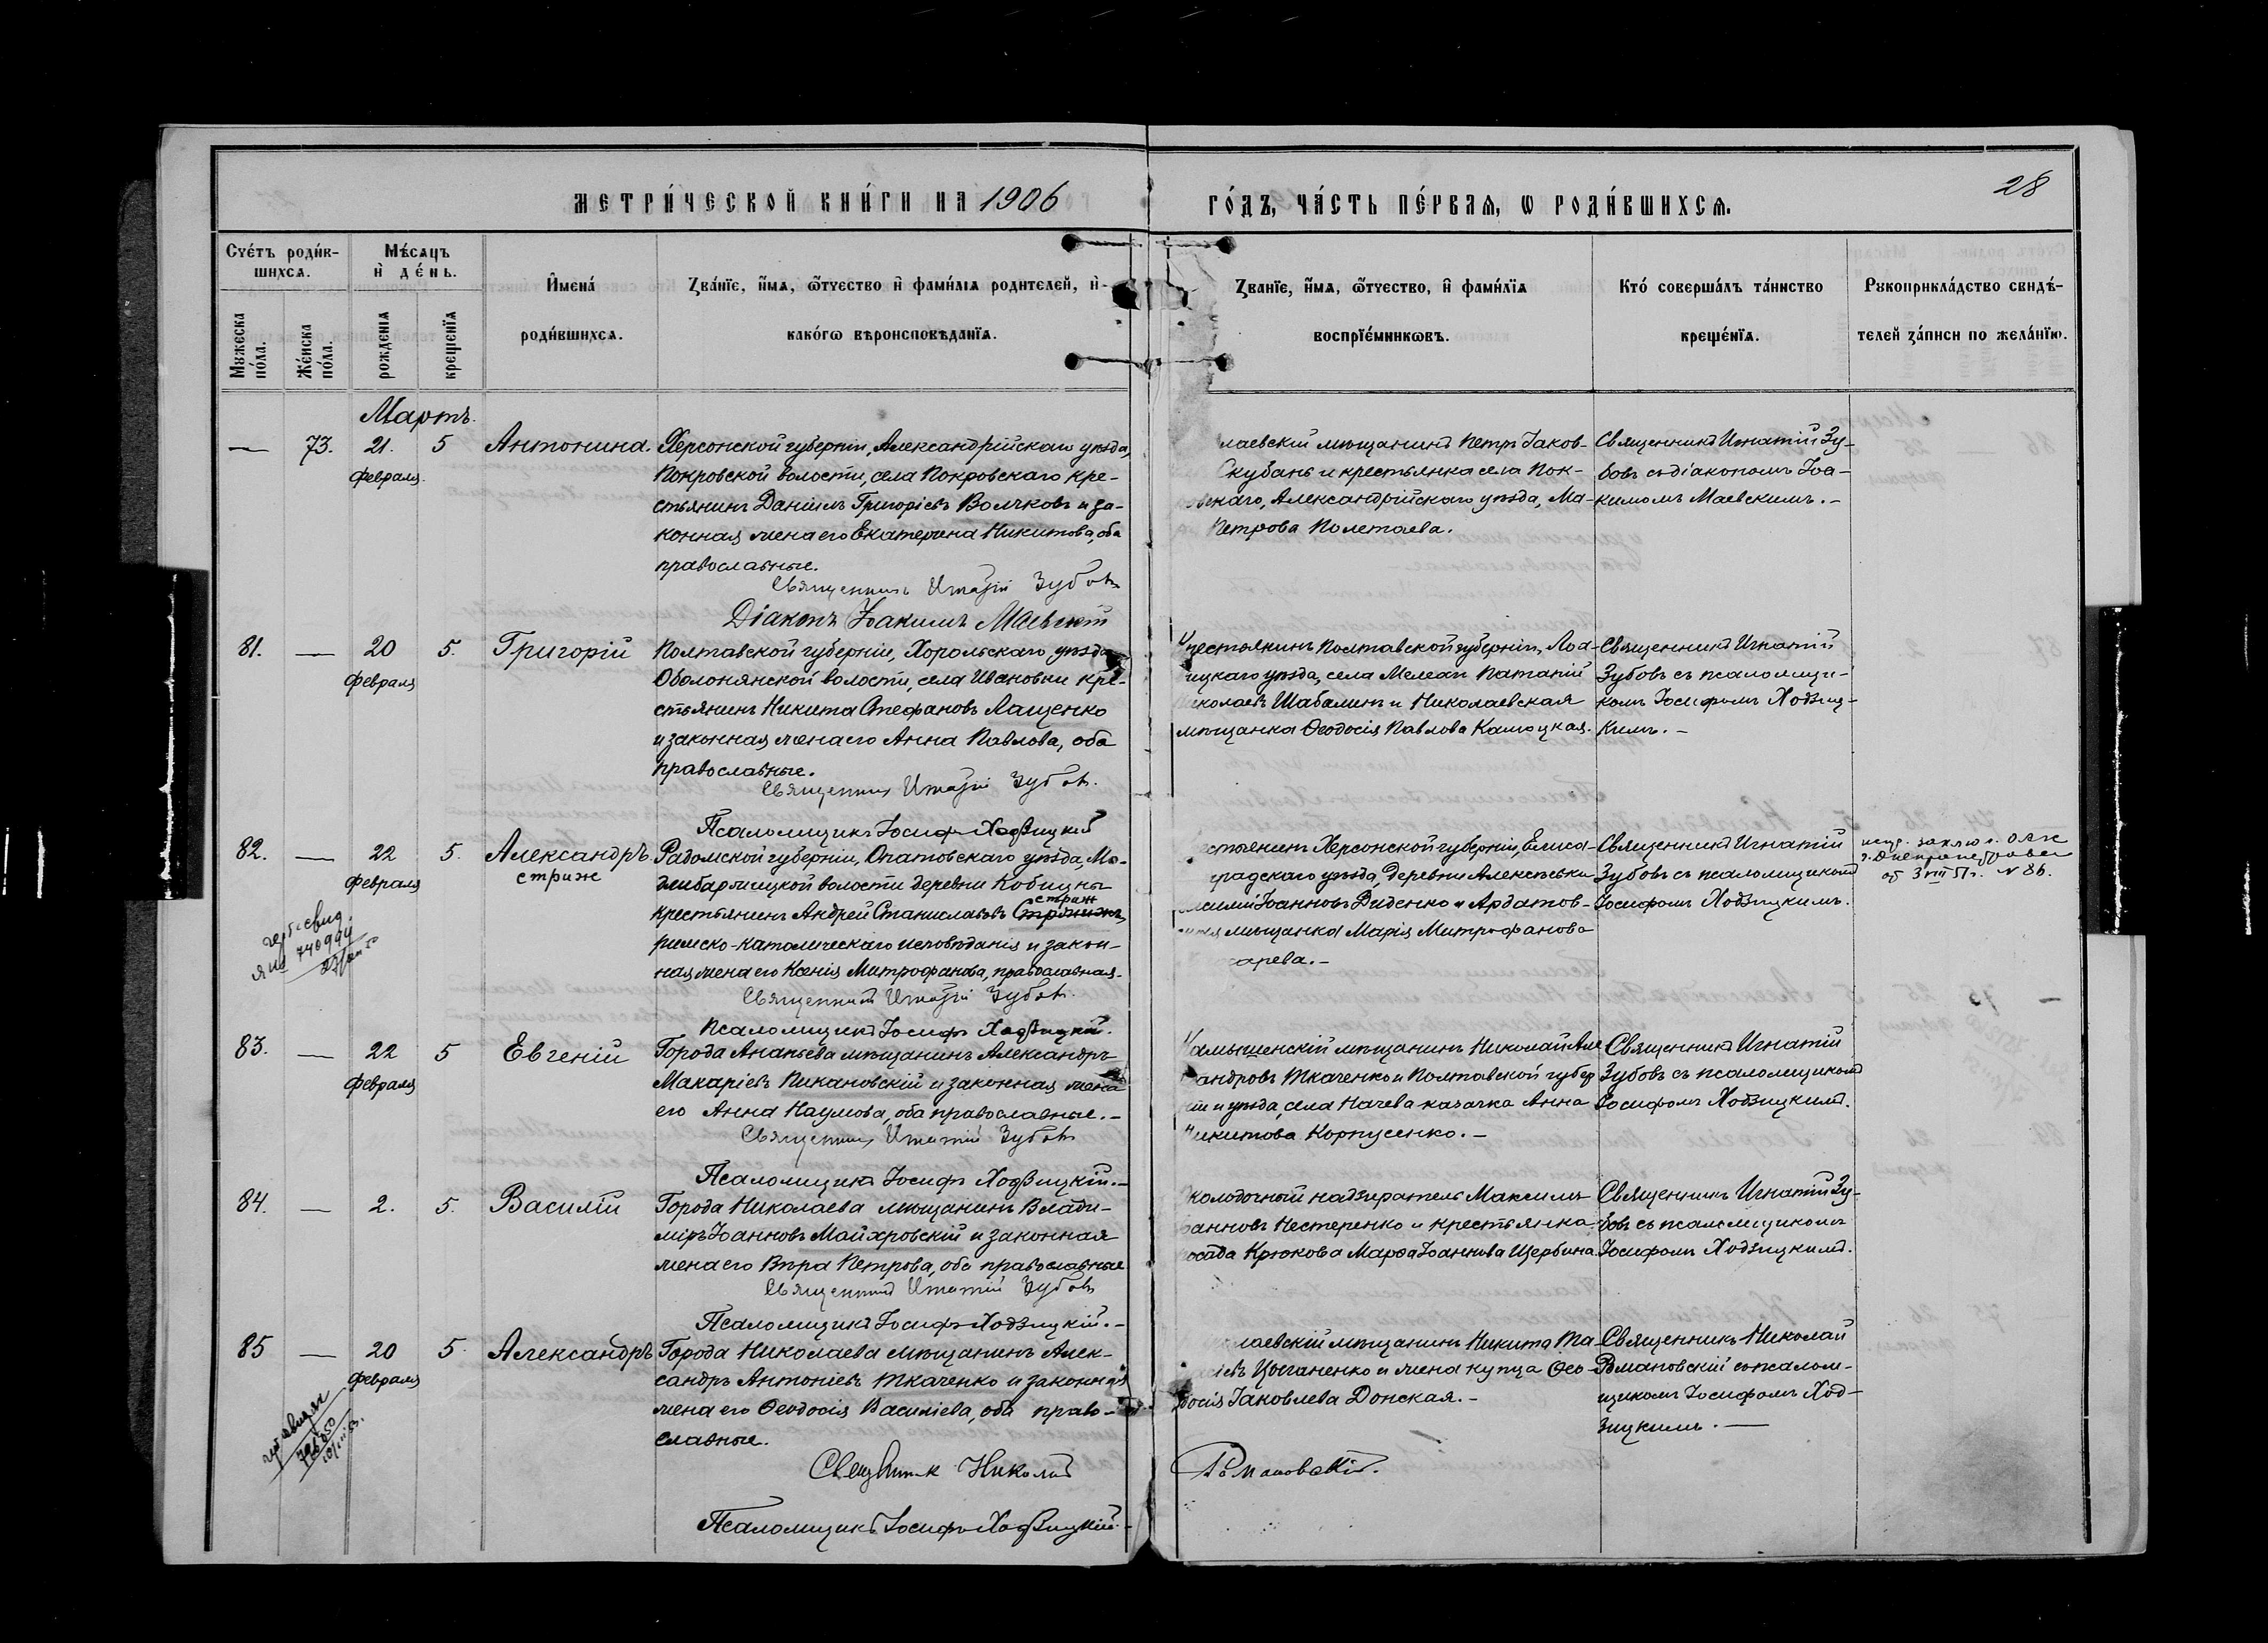 МЕТРИ́ЧЕСКОЙ КНИ́ГИ НА 1906
ГО́ДЪ, ЧА́СТЬ ПЕ́РВАѦ, Ѡ РОДИ́ВШИХСѦ.
28
Счéтъ роди́в-
шихсѧ.
Мѣ́сѧцъ
и҆ де́нь.
И҆мена́
роди́вшихсѧ.
Ꙁва́нїе, и҆́мѧ, ѻ҆́тчество и҆ фами́лїѧ родителей, и҆
како́гѡ вѣроисповѣ́данїѧ.
Ꙁва́нїе, и҆́мѧ, ѻ҆́тчество, и҆ фами́лїѧ
воспрїе́мникѡвъ.
Кто́ соверша́лъ та́инство
креще́нїѧ.
Рꙋкоприкла́дство свидѣ́-
телей ꙁа́писи по жела́нїю.
Мꙋжеска
по́ла.
Же́нска
по́ла.
рожденїѧ
крещенїѧ
Мартъ.
— 73. 21. 5 Антонина.
февраля.
Херсонской губерніи, Александрійскаго уѣзда,
Покровской волости, села Покровскаго кре-
стьянинъ Даніилъ Григоріевъ Волчковъ и за-
конная жена его Екатерина Никитова, оба
православные.
Священникъ Игнатій Зубовъ
Діаконъ Іоакимъ Маевскій
лаевскій мѣщанинъ Петръ Іаков-
Скубань и крестьянка села Пок-
скаго, Александрійскаго уѣзда, Ма-
Петрова Полетаева.
Священникъ Игнатій Зу-
бовъ съ діакономъ Іоа-
кимомъ Маевскимъ. –
81. — 20 5. Григорій
февраля
Полтавской губерніи, Хорольскаго уѣзда
Оболонянской волости, села Ивановки кре-
стьянинъ Никита Стефановъ Лащенко
и законная жена его Анна Павлова, оба
православные.
Священникъ Игнатій Зубовъ.
Псаломщикъ Іосифъ Ходзицкій
крестьянинъ Полтавской губерніи, Лоа-
ицкаго уѣзда, села Мелехи Патапій
Николаевъ Шабалинъ и Николаевская
мѣщанка Ѳеодосія Павлова Камоцкая.
Священникъ Игнатій
Зубовъ съ псаломщи-
комъ Іосифомъ Ходзиц-
кимъ. –
82. — 22 5. Александръ
февраля стриж
Радомской губерніи, Опатовскаго уѣзда,
волости деревни Кобицны
стриж
крестьянинъ Андрей Станиславовъ
римско-католическаго исповѣданія и закон-
ная жена его Ксенія Митрофанова, православная.
Священникъ Игнатій Зубовъ.
Псаломщикъ Іосифъ Ходзицкій.
стьянинъ Херсонской губерніи, Елиса-
градскаго уѣзда, деревни Алексѣевки
силій Іоанновъ Диденко и Ардатов-
мѣщанка Марія Митрофанова
сарева. –
Священникъ Игнатій
Зубовъ съ псаломщикомъ
Іосифомъ Ходзицкимъ.
г. Днепропетровск
от 3 VIII 51 г. № 86.
свид.
740994
83. — 22 5 Евгеній
февраля
Города Ананьева мѣщанинъ Александръ
Макаріевъ Пикановскій и законная жена
его Анна Наумова, оба православные. –
Священникъ Игнатій Зубовъ
Псаломщикъ Іосифъ Ходзицкій. –
Камышенскій мѣщанинъ Николай Але
андровъ Ткаченко и Полтавской губер
и уѣзда, села Начева казачка Анна
Никитова Корпусенко. –
Священникъ Игнатій
Зубовъ съ псаломщикомъ
Іосифомъ Ходзицкимъ.
84. — 2. 5. Василій
Города Николаева мѣщанинъ Влади-
міръ Іоанновъ Майхровскій и законная
жена его Вѣра Петрова, оба православные
Священникъ Игнатій Зубовъ
Псаломщикъ Іосифъ Ходзицкій. –
Околодочный надзиратель Максимъ
оанновъ Нестеренко и крестьянка
посада Крюкова Марѳа Іоаннова Щербина.
Священникъ Игнатій Зу-
бовъ съ псаломщикомъ
Іосифомъ Ходзицкимъ.
85 — 20 5. Александръ
февраля
Города Николаева мѣщанинъ Алек-
сандръ Антоніевъ Ткаченко и законная
жена его Ѳеодосія Василіева, оба право-
славные.
Священник Николай
Романовскій.
Псаломщикъ Іосифъ Ходзицкій. –
лаевскій мѣщанинъ Никита
Цыганенко и жена купца Ѳео-
досія Іаковлева Донская. –
Священникъ Николай
Романовскій съ псалом-
щикомъ Іосифомъ Ход-
зицкимъ. —